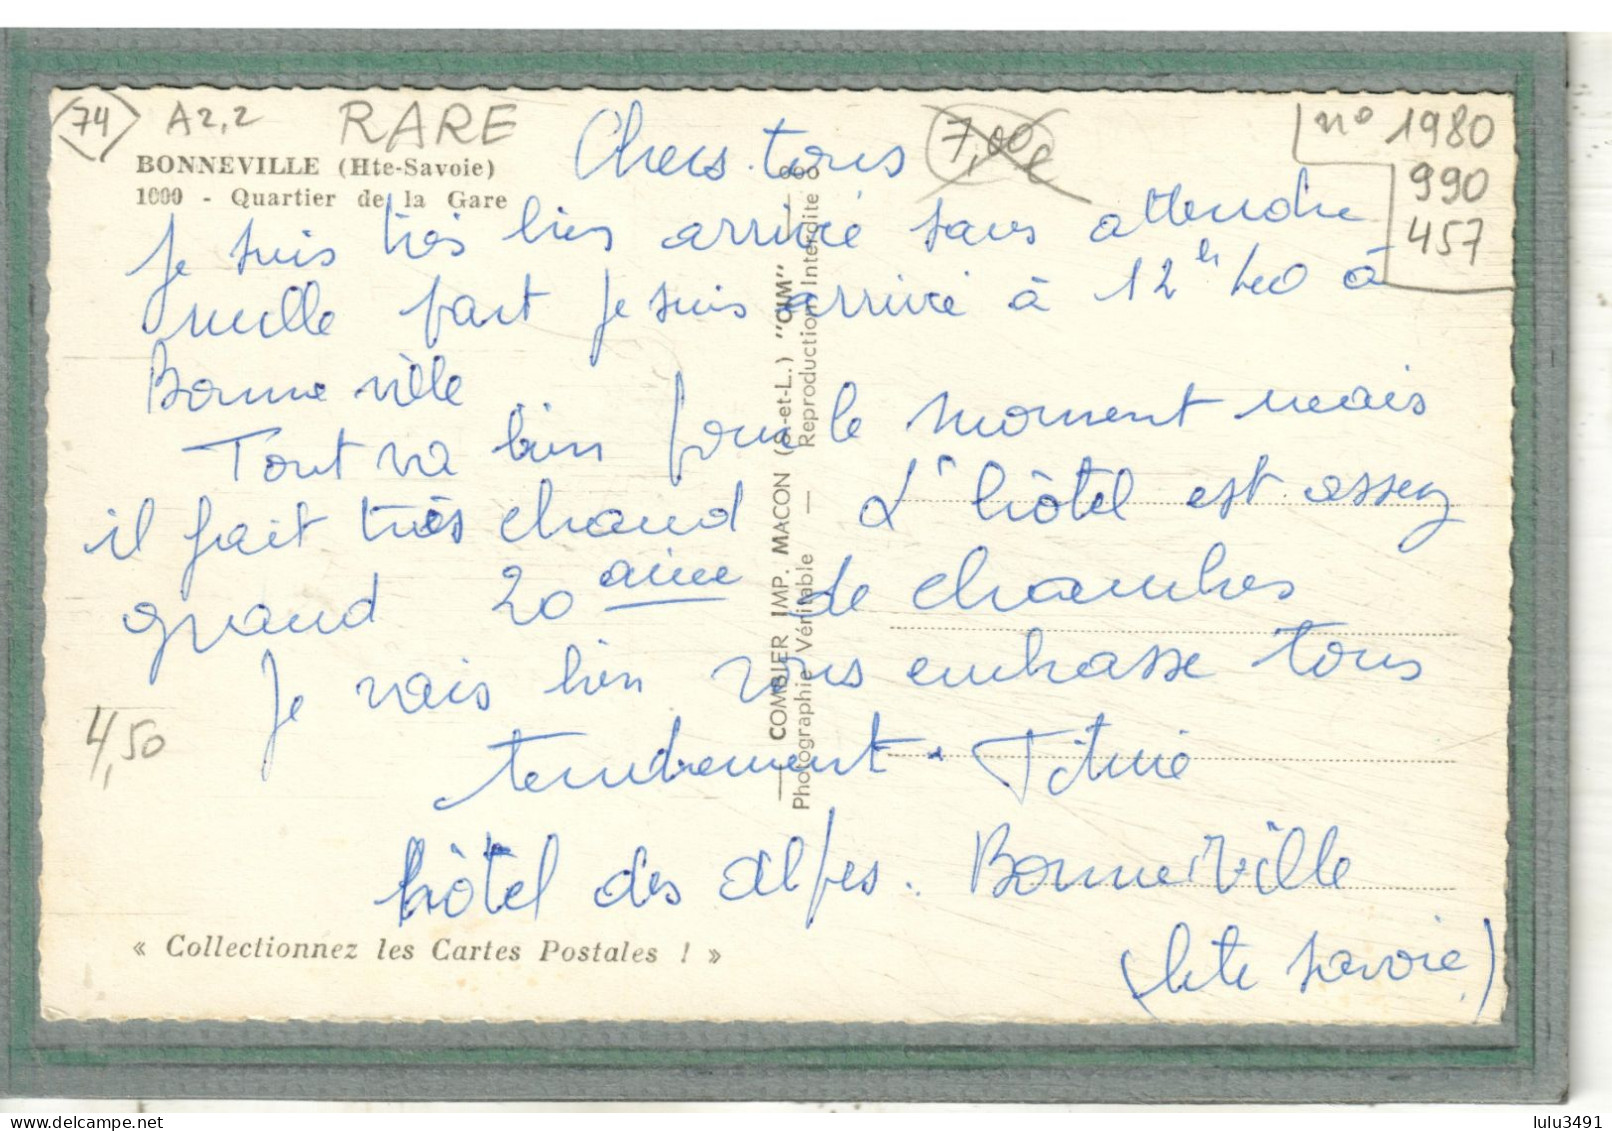 74
A2,2
RARE
7,00€
n° 1980
990
457
BONNEVILLE (Hte-Savoie)
1000 - Quartier de la Gare
Chers tous
Je suis très bien arrivé sans attendre
nulle part je suis arrivé à 12 h 40 à
Bonneville
Tout va bien pour le moment mais
il fait très chaud L'hôtel est assez
grand 20aine de chambres
Je vais bien vous embrasse tous
tendrement.
hôtel des Alpes. Bonneville
(hte savoie)
4,50
« Collectionnez les Cartes Postales ! »
COMBIER IMP. MACON (S.-et-L.) "CIM"
Photographie Véritable — Reproduction Interdite
lulu3491